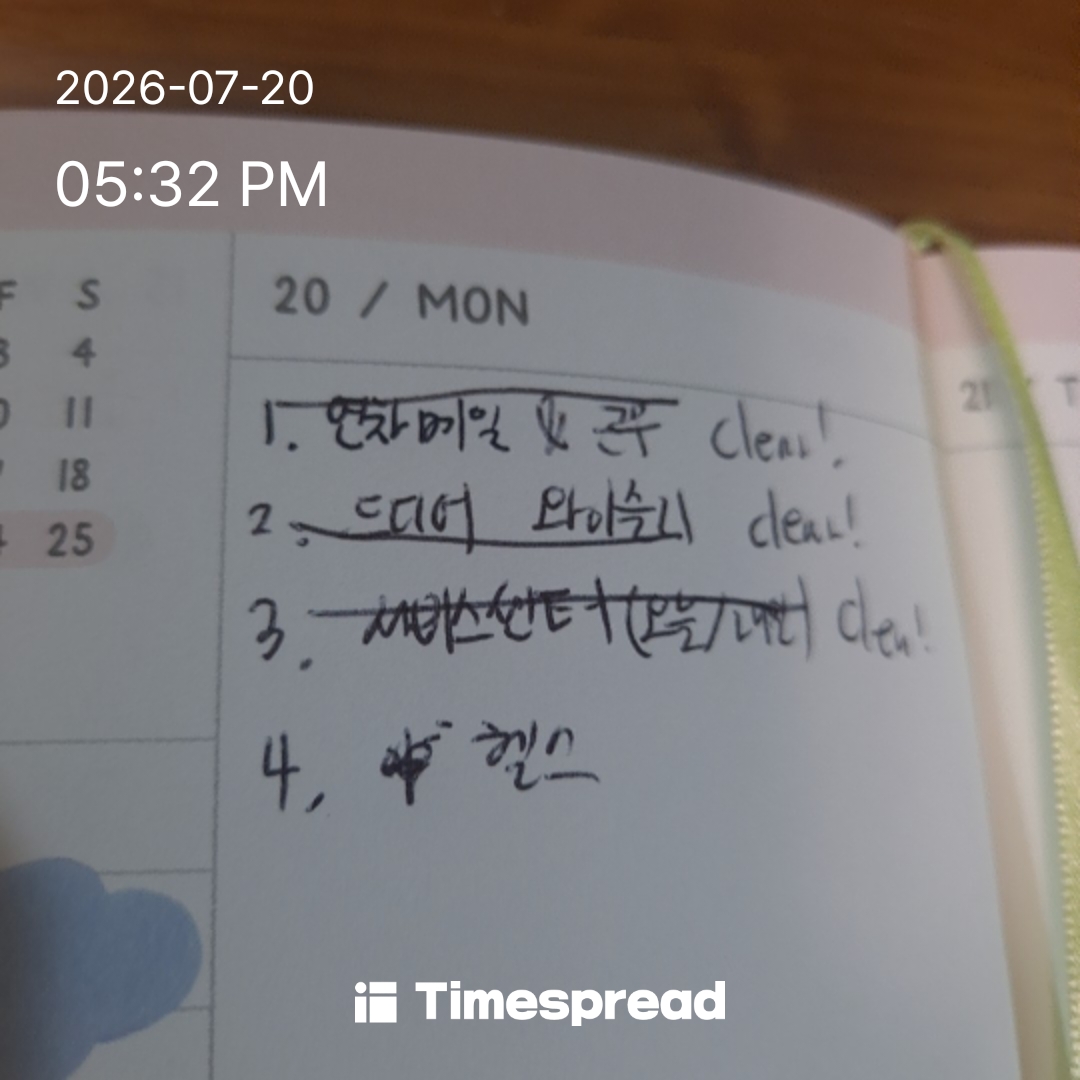 2026-07-20
05:32 PM
F S
3 4
11
18
25
20 / MON
21
T
1. 연차메일 & 근무 Clear!
2. 드디어 와이슬리 clear!
3. 서비스센터 (오늘/내일) Clear!
4, 헬스
Timespread